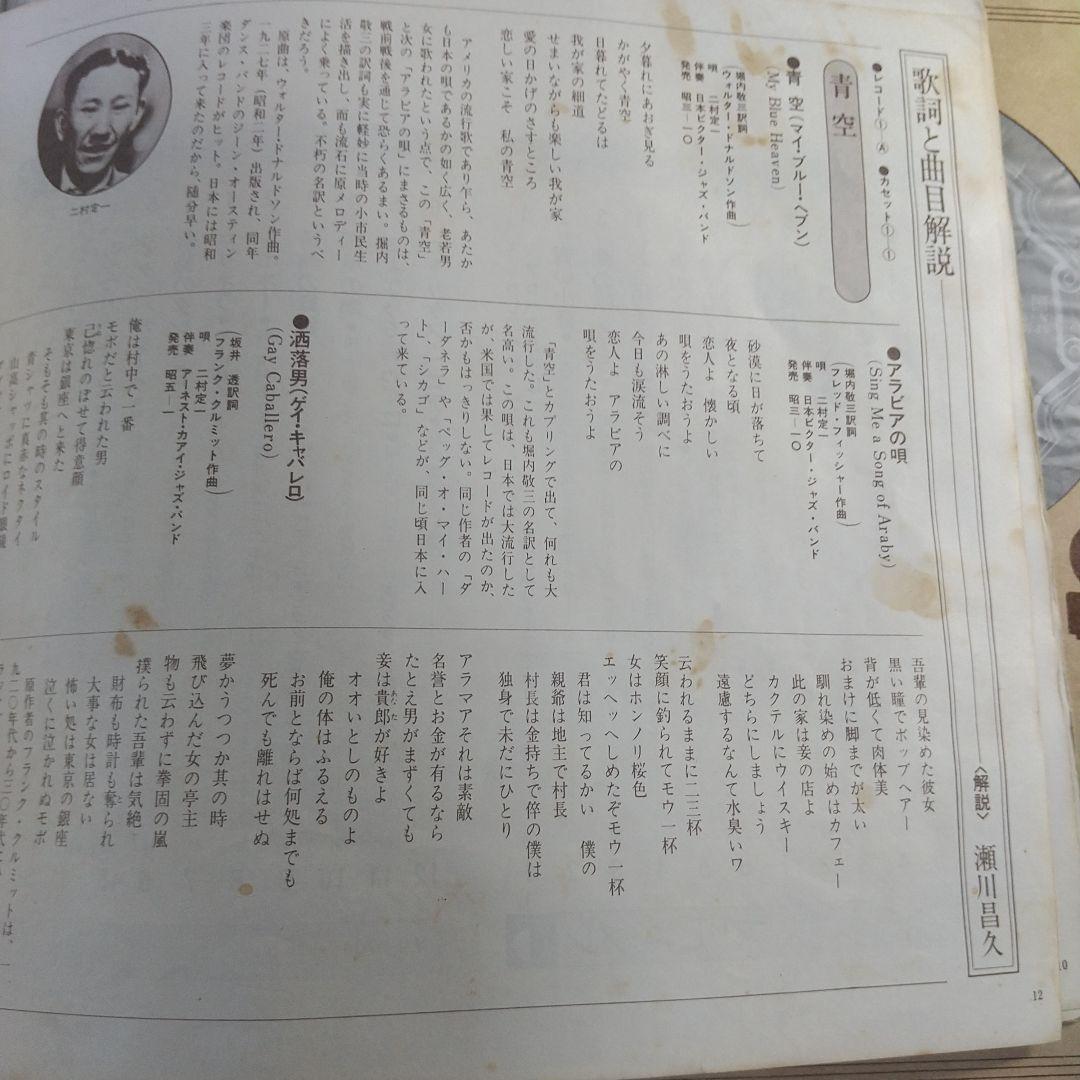 歌詞と曲目解説
〈解説〉 瀬川昌久
●レコード①Ⓐ ●カセット①①
青空
●青空(マイ・ブルー・ヘブン)
(My Blue Heaven)
(堀内敬三訳詞
(ウォルター・ドナルドソン作曲)
唄 二村定一
伴奏 日本ビクター・ジャズ・バンド
発売 昭三―一〇
夕暮れにあおぎ見る
かがやく青空
日暮れてたどるは
我が家の細道
せまいながらも楽しい我が家
愛の日かげのさすところ
恋しい家こそ 私の青空
アメリカの流行歌であり乍ら、あたか
も日本の唄であるかの如く広く、老若男
女に歌われたという点で、この「青空」
と次の「アラビアの唄」にまさるものは、
戦前戦後を通じて恐らくあるまい。堀内
敬三の訳詞も実に軽妙に当時の小市民生
活を描き出し、而も流石に原メロディー
によく乗っている。不朽の名訳というべ
きだろう。
原曲は、ウォルター・ドナルドソン作曲。
一九二七年(昭和二年)出版され、同年
ダンス・バンドのジーン・オースティン
楽団のレコードがヒット。日本には昭和
三年に入って来たのだから、随分早い。
二村定一
●アラビアの唄
(Sing Me a Song of Araby)
(堀内敬三訳詞
(フレッド・フィッシャー作曲)
唄 二村定一
伴奏 日本ビクター・ジャズ・バンド
発売 昭三―一〇
砂漠に日が落ちて
夜となる頃
恋人よ 懐かしい
唄をうたおうよ
あの淋しい調べに
今日も涙流そう
恋人よ アラビアの
唄をうたおうよ
「青空」とカプリングで出て、何れも大
流行した。これも堀内敬三の名訳として
名高い。この唄は、日本では大流行した
が、米国では果してレコードが出たのか、
否かもはっきりしない。同じ作者の「ダ
ーダネラ」や「ペッグ・オ・マイ・ハー
ト」、「シカゴ」などが、同じ頃日本に入
って来ている。
●洒落男(ゲイ・キャバレロ)
(Gay Caballero)
(坂井 透訳詞
(フランク・クルミット作曲)
唄 二村定一
伴奏 アーネスト・カアイ・ジャズ・バンド
発売 昭五―一
俺は村中で一番
モボだと云われた男
己惚れのぼせて得意顔
東京は銀座へと来た
そもそも其の時のスタイル
青シャツに真赤なネクタイ
山高シャッポにロイド眼鏡
吾輩の見染めた彼女
黒い瞳でボッブヘアー
背が低くて肉体美
おまけに脚までが太い
馴れ染めの始めはカフェー
此の家は妾の店よ
カクテルにウイスキー
どちらにしましょう
遠慮するなんて水臭いワ
云われるままに二三杯
笑顔に釣られてモウ一杯
女はホンノリ桜色
エッヘッヘしめたぞモウ一杯
君は知ってるかい 僕の
親爺は地主で村長
村長は金持ちで倅の僕は
独身で未だにひとり
アラマアそれは素敵
名誉とお金が有るなら
たとえ男がまずくても
妾は貴郎が好きよ
あなた
オオいとしのものよ
俺の体はふるえる
お前とならば何処までも
死んでも離れはせぬ
夢かうつつか其の時
飛び込んだ女の亭主
物も云わずに拳固の嵐
撲られた吾輩は気絶
財布も時計も奪られ
と
大事な女は居ない
怖い処は東京の銀座
泣くに泣かれぬモボ
原作者のフランク・クルミットは、一
九二〇年代から三〇年代
12
10